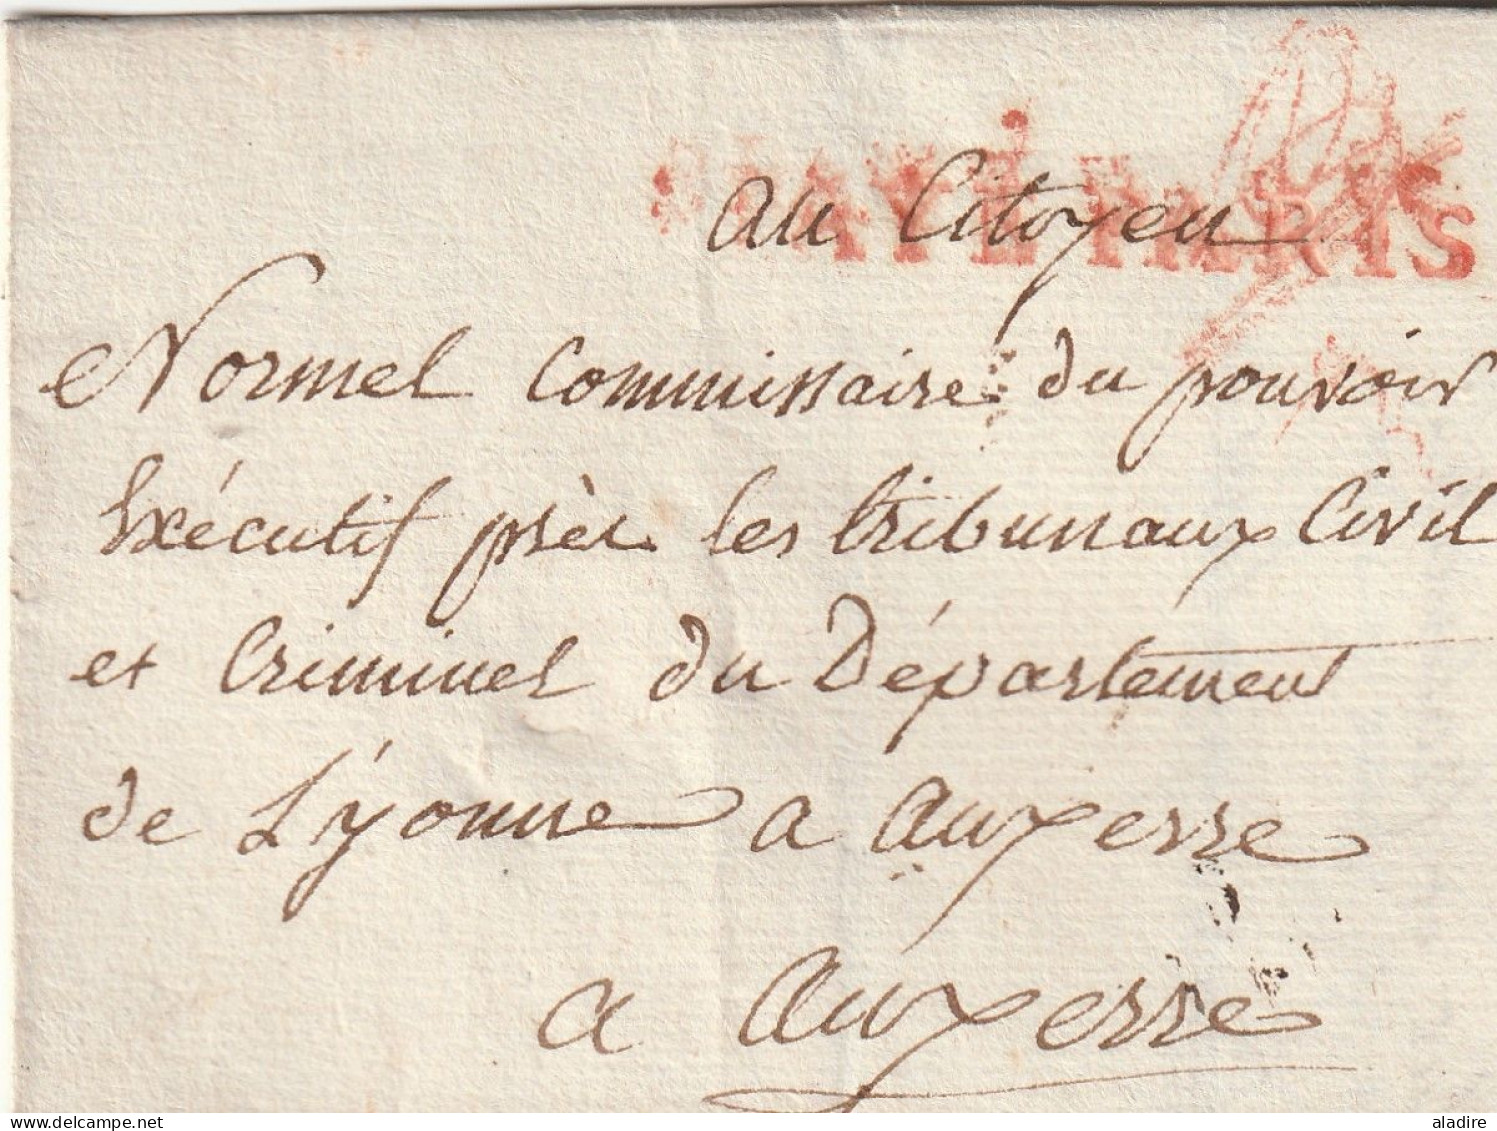 PAYÉ PARIS
au Citoyen
Normel Commissaire du pouvoir
Exécutif près les tribunaux Civil
et Criminel du Département
de L'yonne a auxerre
a auxerre
delcampe.net
aladire